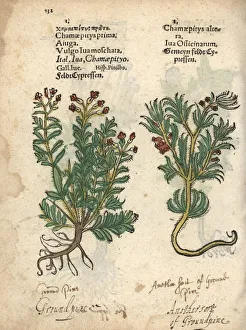 1;
Chamæpitys prima,
Aiuga.
Vulgo Iua moschata,
Ital. Iua, Chamæpityo.
Gall. Iue.
Feldt Cypressen.
2;
Chamæpitys alte-
ra,
Iua Officinarum,
Gemeyn feldt Cy-
pressen.
Ground pine
Another sort of Ground
Pine
Ground pine
Another sort
of Groundpine